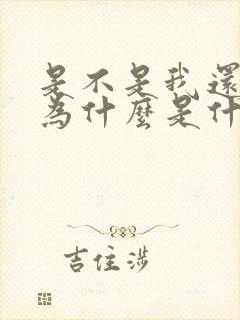 是不是我還
為什麼是什
吉住渉